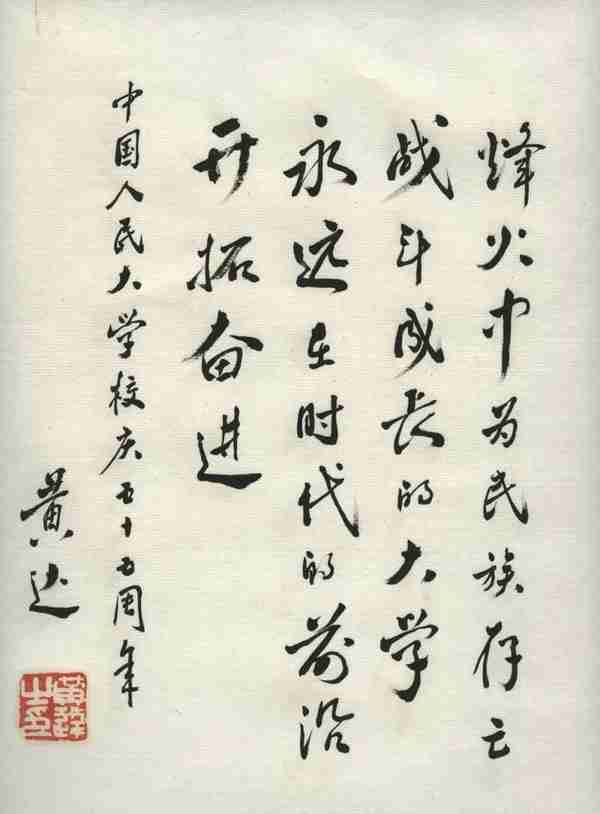 烽火中为民族存亡
战斗成长的大学
永远在时代的前沿
开拓奋进
中国人民大学校庆五十五周年
黄达